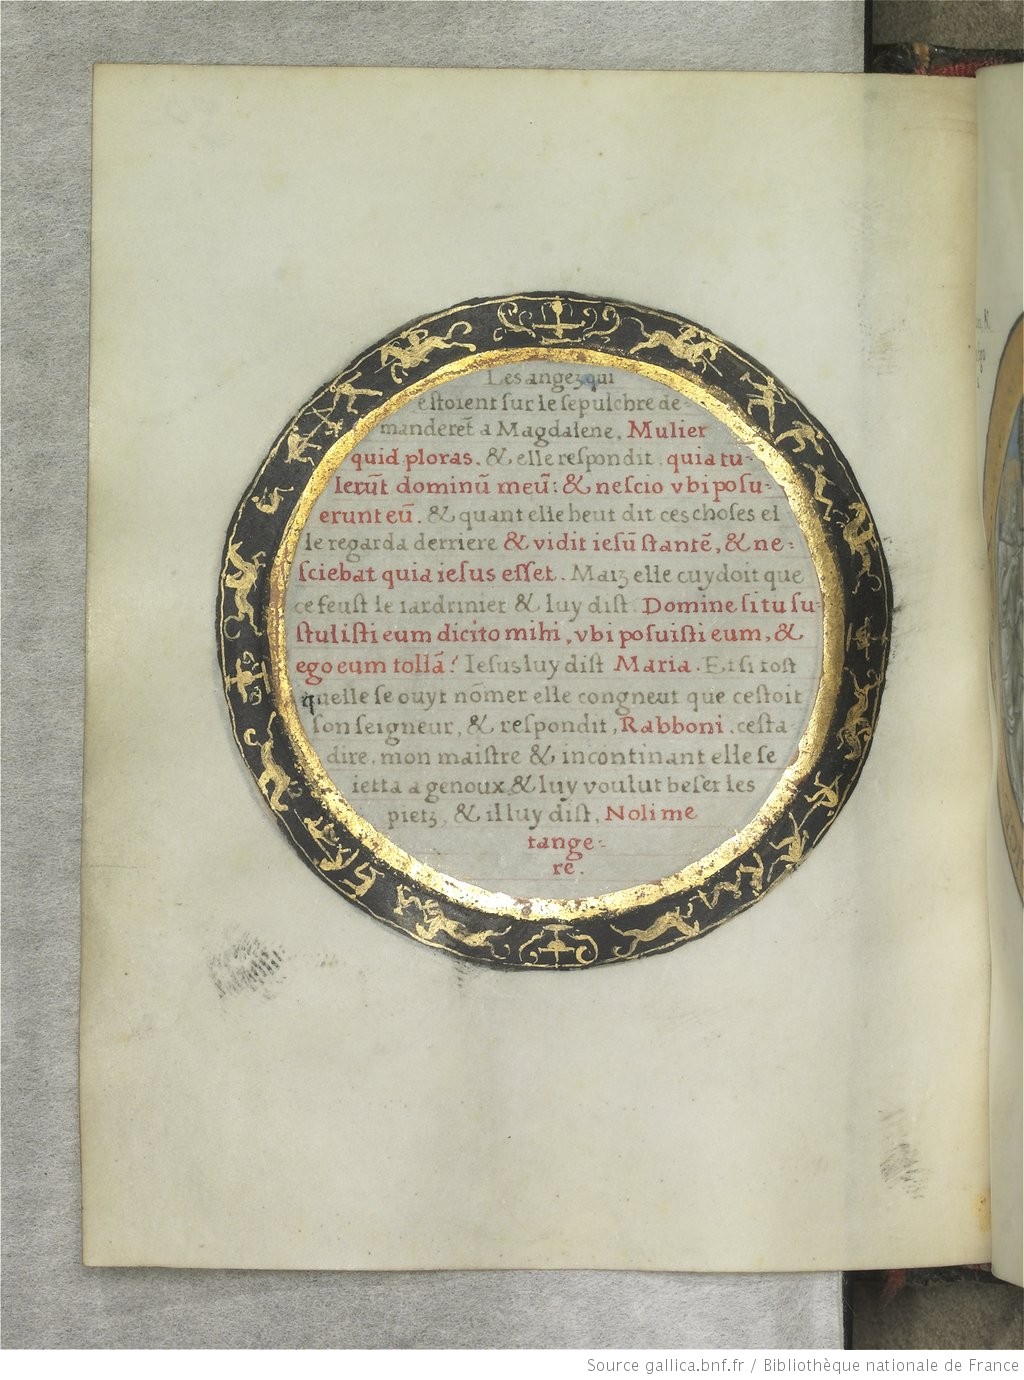 Les angez qui
estoient sur le sepulchre de-
manderet̃ a Magdalene, Mulier
quid ploras. & elle respondit. quia tu-
lerũt dominũ meũ: & nescio vbi posu-
erunt eũ. & quant elle heut dit ces choses el
le regarda derriere & vidit iesũ stantẽ, & ne-
sciebat quia iesus esset. Maiz elle cuydoit que
ce feust le iardrinier & luy dist. Domine si tu su-
stulisti eum dicito mihi, vbi posuisti eum, &
ego eum tollã! Iesus luy dist Maria. Et si tost
quelle se ouyt nõmer elle congneut que cestoit
son seigneur, & respondit, Rabboni. cesta-
dire, mon maistre & incontinant elle se
ietta a genoux & luy voulut beser les
pietz, & il luy dist, Noli me
tange-
re.
Source gallica.bnf.fr / Bibliothèque nationale de France